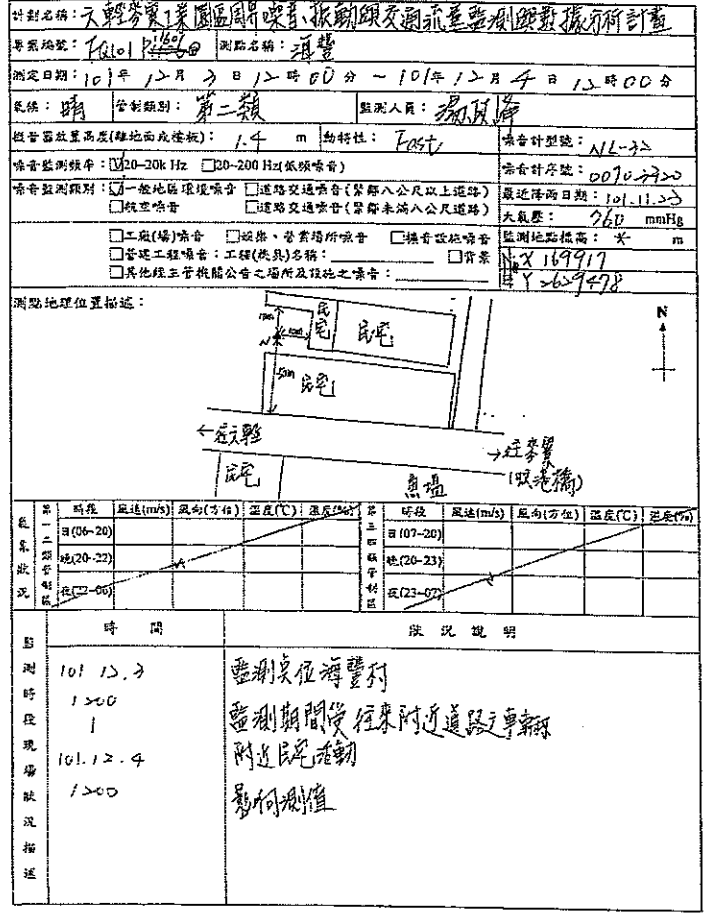 計劃名稱：六輕麥寮工業園區周界噪音、振動頻交通流量監測與數據分析計畫
專案編號： 測點名稱：海豐
測定日期：101年12月3日12時00分～101年12月4日12時00分
氣候：晴 管制類別：第二類 監測人員：
微音器放置高度(離地面或樓板)：1.4 m 動特性：Fast 噪音計型號：NL-32
噪音監測頻率：☑20~20k Hz □20~200 Hz(低頻噪音) 噪音計序號：
噪音監測類別：☑一般地區環境噪音 □道路交通噪音(緊鄰八公尺以上道路) 最近降雨日期：101.11.23
□航空噪音 □道路交通噪音(緊鄰未滿八公尺道路) 大氣壓：760 mmHg
□工廠(場)噪音 □娛樂、營業場所噪音 □擴音設施噪音 監測地點標高： m
□營建工程噪音：工程(機具)名稱： □背景 X 169917
□其他經主管機關公告之場所及設施之噪音： Y 2629478
測點地理位置描述：
N
民宅
民宅
50m 民宅
←往六輕
→往麥寮
民宅
魚塭
氣象狀況 第一二類管制區 時段 風速(m/s) 風向(方位) 溫度(℃) 濕度(%) 第三四類管制區 時段 風速(m/s) 風向(方位) 溫度(℃) 濕度(%)
日(06~20) 日(07~20)
晚(20~22) 晚(20~23)
夜(22~06) 夜(23~07)
監測時段現場狀況描述
時 間 狀 況 說 明
101.12.3 監測點位海豐村
1200 監測期間受往來附近道路之車輛
| 附近民宅活動
101.12.4
1200 影响測值